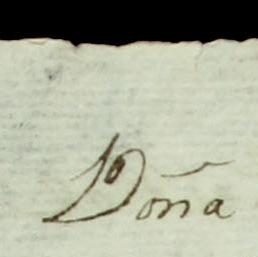 Doña